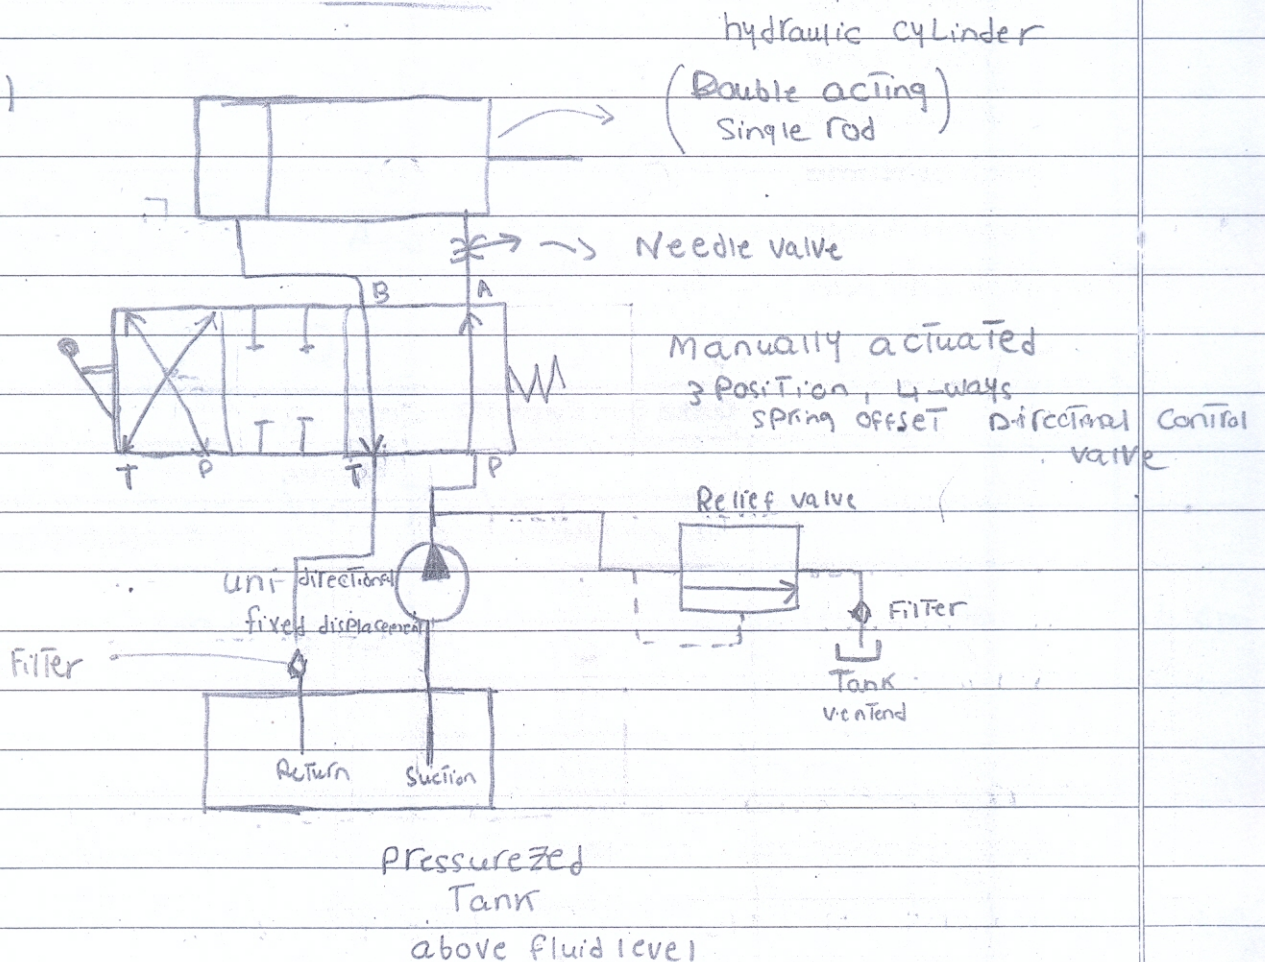 hydraulic cylinder
(Double acting)
Single rod
Needle valve
B
A
Manually actuated
3 Position, 4-ways
spring offset Directional Control
valve
T
P
T
P
Relief valve
uni-directional
fixed displacement
Filter
Filter
Tank
Ventend
Return
Suction
Pressurezed
Tank
above fluid level